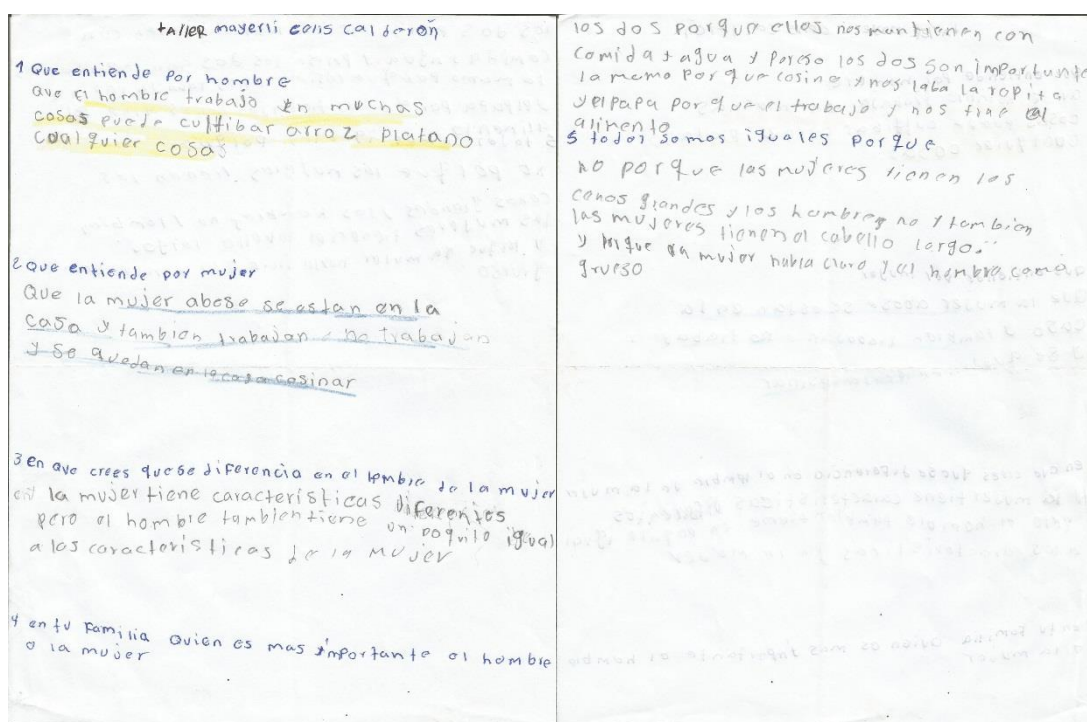 tALLER mayerli solis calderoñ
1 Que entiende por hombre
que el hombre trabaja en muchas
cosas puede cultibar arroz platano
coalquier cosas
2 Que entiende por mujer
Que la mujer abese se estan en la
casa y tambien trabajan o no trabajan
y se quedan en la casa cosinar
3 en que crees que se diferencia en el hombre de la mujer
la mujer tiene características diferentes
pero el hombre tambien tiene un poquito igual
a las características de la mujer
4 en tu familia quien es mas importante el hombre
o la mujer
los dos porque ellos nos mantienen con
comida y agua y poreso los dos son importante
la mama porque cosina y nos laba la ropita
y el papa porque el trabaja y nos trae el
alimento
5 todos somos iguales porque
no porque las mujeres tienen los
cenos grandes y los hombres no y tambien
las mujeres tienen el cabello largo
y la mujer habla claro y el hombre como
grueso